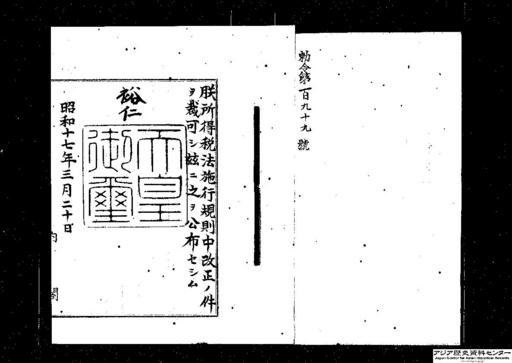 勅令第百九十九號
朕所得税法施行規則中改正ノ件
ヲ裁可シ茲ニ之ヲ公布セシム
裕仁
天皇御璽
昭和十七年三月二十日
内閣
アジア歴史資料センター
Japan Center for Asian Historical Records